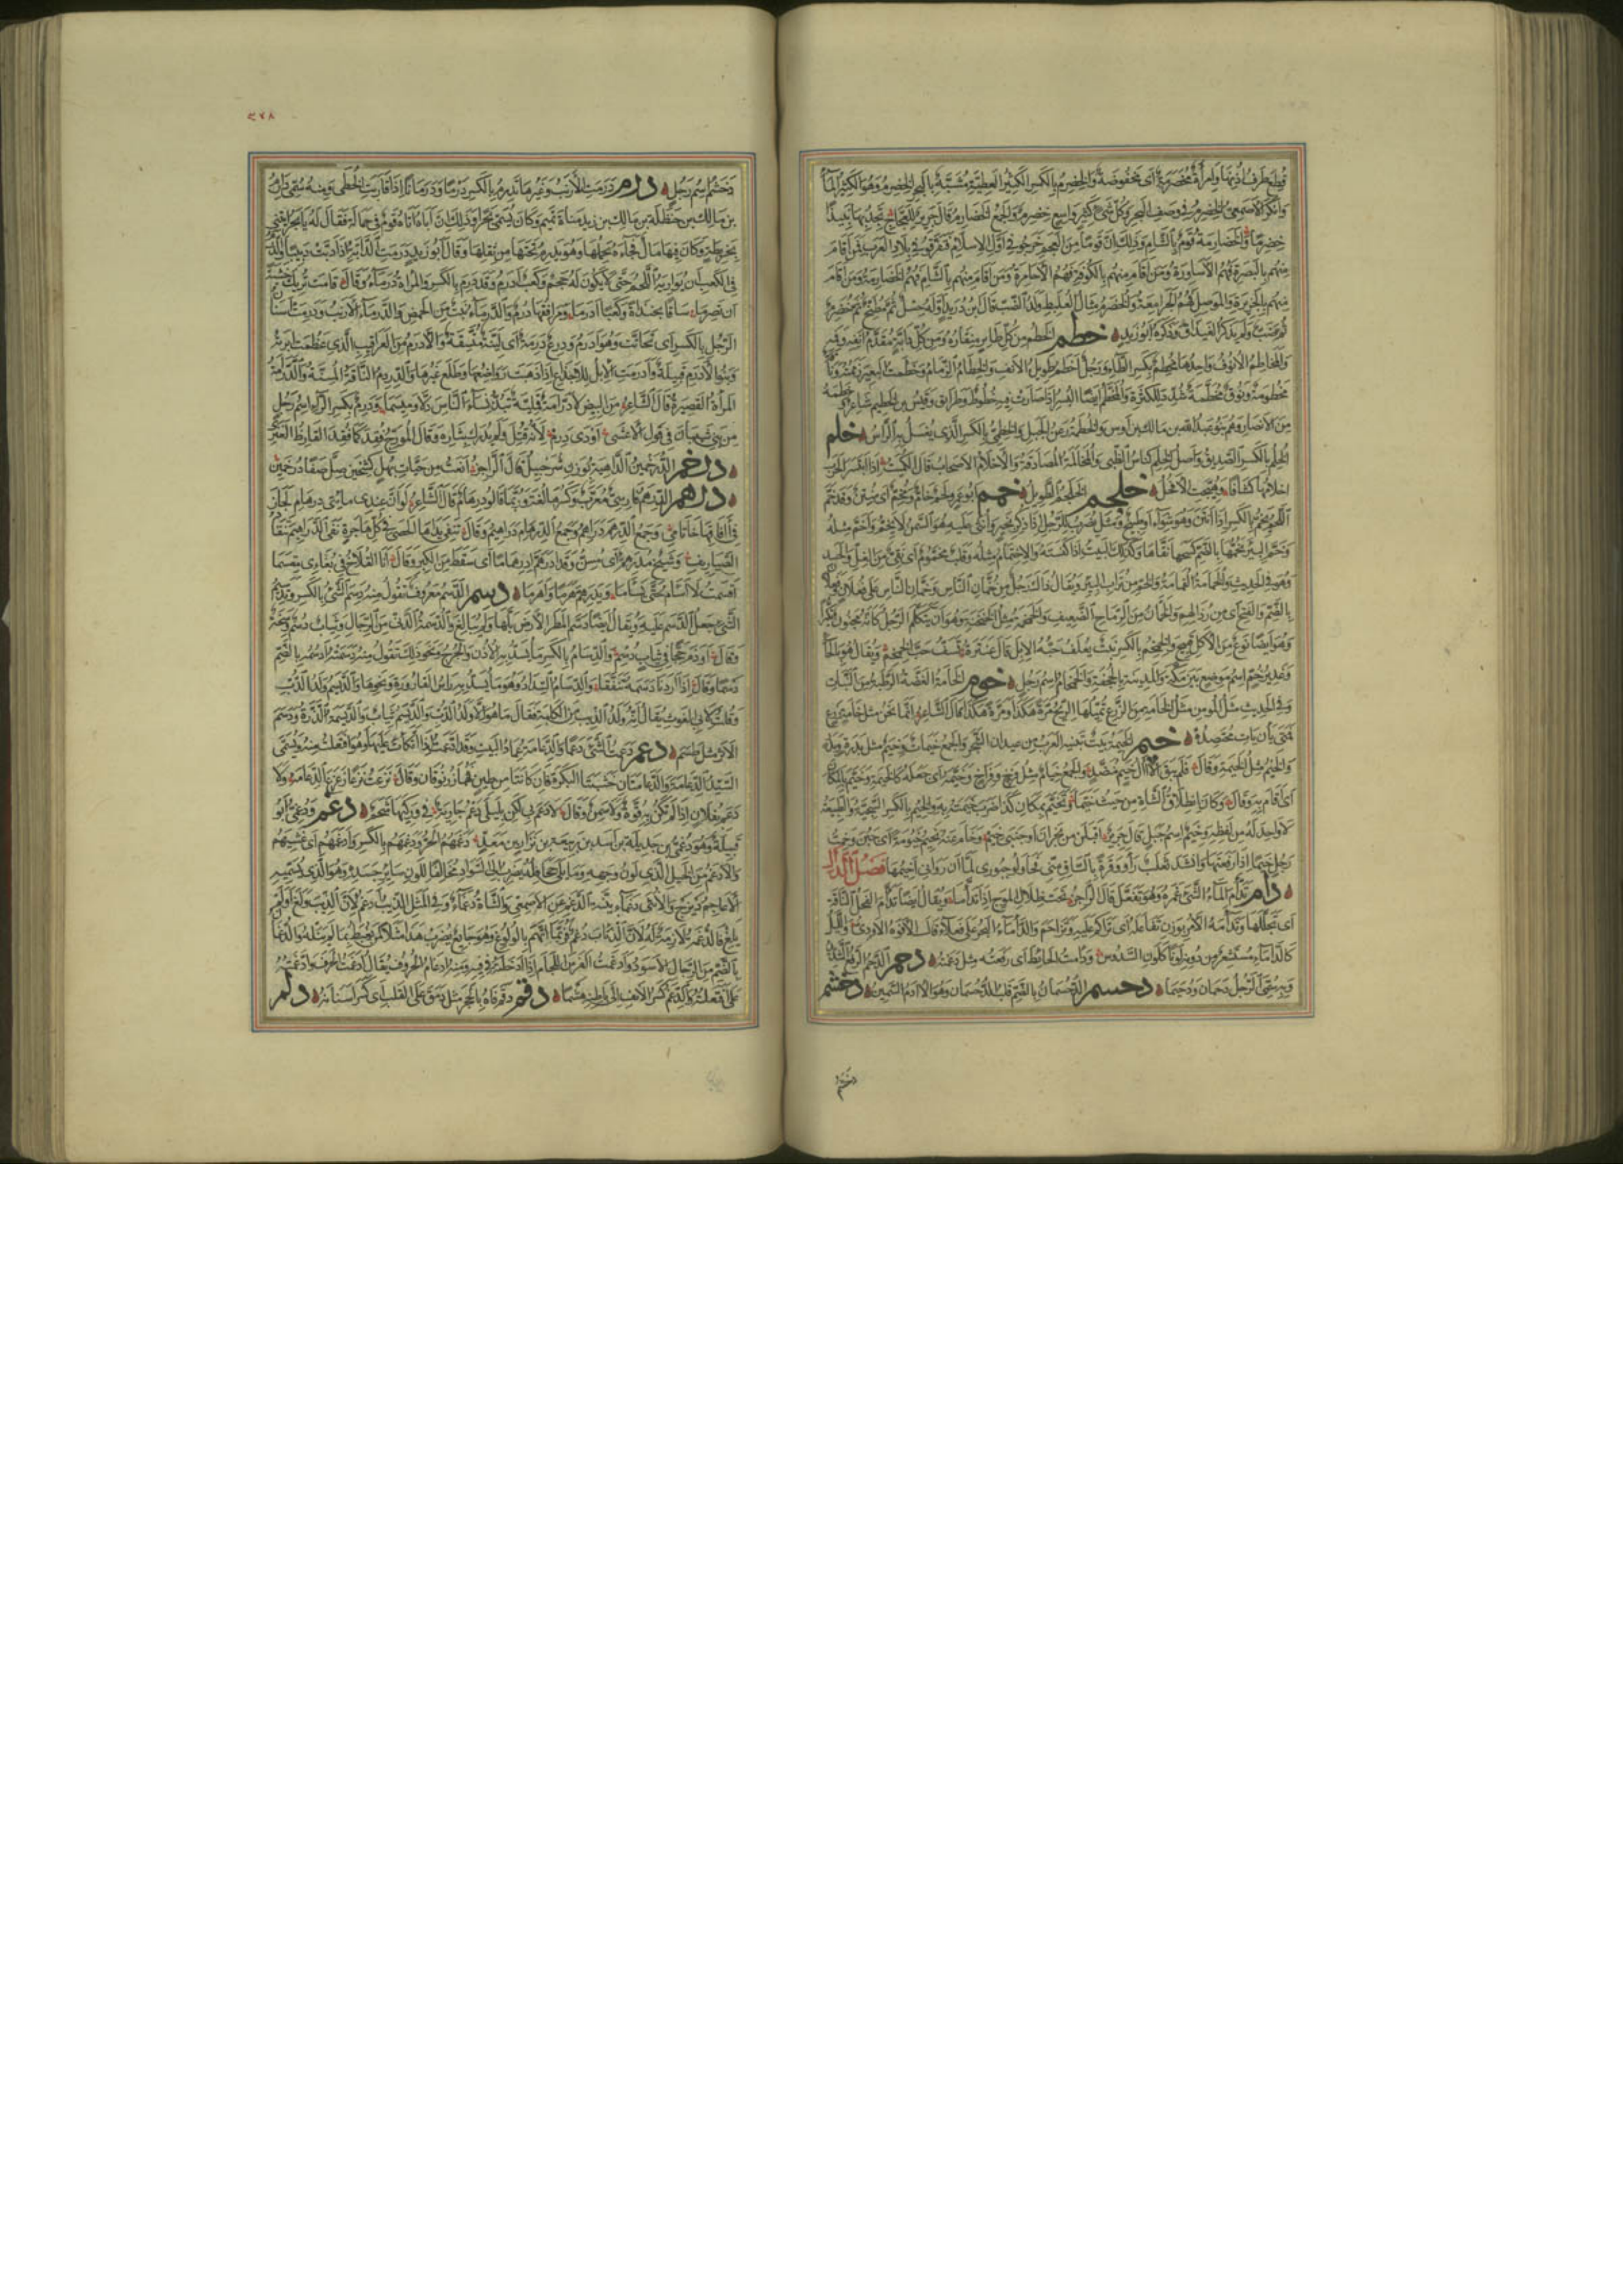 قطع طرف اذنها وامرأة مخضرمة اى مخفوضة والخضرم بالكسر الكثير العطية مشبه بالبحر الخضرم وهو الكثير الماء
وانكر الاصمعى الخضرم فى وصف البحر وكل شئ كثير واسع خضرم والجمع الخضارم قال جرير للعجاج تجدنى بها بعيدا
خضرما والخضارمة قوم بالشام وذلك ان قوما من العجم خرجوا فى اول الاسلام فتفرقوا فى بلاد العرب فمن اقام
منهم بالبصرة فهم الاساورة ومن اقام منهم بالكوفة فهم الاحامرة ومن اقام منهم بالشام فهم الخضارمة ومن اقام
منهم بالجزيرة والموصل فهم الجرامقة والخضرم مثال العلبط ولد الضب قال ابن دريد اوله حسل ثم مطبخ ثم خضرم
ثم ضب ولم يذكر الغيداق وذكره ابو زيد خطم الخطم من كل طاير منقاره ومن كل دابة مقدم انفه وفيه
والمخاطم الانوف واحدها مخطم بكسر الطاء ورجل اخطم طويل الانف والخطام الزمام وخطمت البعير زممته
مخطومة ونوق مخطمة شدد للكثرة والمخطم ايضا البسر اذا صارت فيه خطوط وطرايق وقيس بن الخطيم شاعر وخطمة
من الانصار وهم بنو عبد الله بن مالك بن اوس والخطمة رعن الجبل والخطمى بالكسر الذى يغسل به الراس خلم
الخلم بالكسر الصديق واصل الخلم كناس الظبى والمخالمة المصادقة والاخلام الاصحاب قال الكميت اذا ابتسر الحرب
اخلامها كشافا وهيجت الافحل خلجم الخلجم الطويل خمم ابو عمرو لحم خام ومخم اى منتن وقد خم
اللحم يخم بالكسر اذا انتن وهو شواء او طبيخ ومثل يضرب للرجل اذا ذكر بخير واثنى عليه هو السمن لا يخم واخم مثله
وخم البير يخمها بالضم كسحها ونقاها وكذلك البيت اذا كنسته والاختمام مثله وقلب مخموم اى نقى من الغل والحسد
وهو فى الحديث والخمامة القمامة والخم من تراب البير ويقال ذاك رجل من خمان الناس وخمان الناس على فعلان وفعلان
بالضم والفتح اى من رذالهم والخمان من الرماح الضعيف والخمخمة مثل الخنخنة وهو ان يتكلم الرجل كانه مخنون تكبرا
وهو ايضا نوع من الاكل قبيح والخمخم بالكسر نبت يعلف حبه الابل قال عنترة تسف حب الخمخم ويقال هو بالحاء
وغدير خم اسم موضع بين مكة والمدينة بالجحفة والخمخام اسم رجل خوم الخامة الغضة الرطبة من النبات
وفى الحديث مثل المومن مثل الخامة من الزرع تميلها الريح مرة هكذا ومرة هكذا قال الشاعر انما نحن مثل خامة زرع
فمتى يأن يات محتصده خيم الخيمة بيت تبنيه العرب من عيدان الشجر والجمع خيمات وخيم مثل بدرة وبدر
والخيم مثل الخيمة وقال فلم يبق الا آل خيم منضد والجمع خيام مثل فرخ وفراخ وخيمه اى جعله كالخيمة وخيم بالمكان
اى اقام به وقال وكان انطلاق الشاة من حيث خيما وتخيم بمكان كذا ضرب خيمته به والخيم بالكسر السجية والطبيعة
لا واحد له من لفظه وخيم اسم جبل قال جرير اقبلن من نجران او جنبى خيم وخام عنه يخيم خيومة اى جبن وخمت
رجلى خيما اذا رفعتها وانشد ثعلب رأوا وقرة بالساق منى فحاولوا جبورى لما ان رأونى اخيمها فصل الدال
دأم تدأم الماء الشئ غمره وهو تفعل قال الراجز تحت ظلال الموج اذ تدأما ويقال ايضا تدأم الفحل الناقة
اى تجللها وتداءمه الامر بوزن تفاعله اى تراكم عليه وتزاحم والداماء البحر على فعلاء قال الافوه الاودى والليل
كالداماء مستشعر من دونه لونا كلون السدوس ودامت الحايط اى رفعته مثل دعمته دحم الدحم الدفع الشديد
وبه سمى الرجل دحمان ودحيما دحسم الدحسمان بالضم قلب الدحمسان وهو الآدم السمين دخشم
دخشم
٤٢٨
دخشم اسم رجل درم درمت الارنب وغيرها تدرم بالكسر درما ودرمانا اذا قاربت الخطى ومنه سمى دارم
بن مالك بن حنظلة بن مالك بن زيد مناة بن تميم وكان يسمى بحرا وذلك ان اباه اتاه قوم فى حمالة فقال له يا بحر ايتنى
بخريطة وكان فيها مال فجاءه يحملها وهو يدرم تحتها من ثقلها وقال ابو زيد درمت الدابة اذا دبت دبيبا والدرم
فى الكعب ان يواريه اللحم حتى لا يكون له حجم وكعب ادرم وقد درم بالكسر والمراة درماء وقال قامت تريك خشية
ان تصرما ساقا بخنداة وكعبا ادرما ومرافقها درم والدرماء نبت من الحمض والدرماء الارنب ودرمت اسنان
الرجل بالكسر اى تحاتت وهو ادرم ودرع درمة اى لينة متسقة والادرم من العراقيب الذى عظمت ابرته
وبنو الادرم قبيلة وادرمت الابل للاجذاع اذا ذهبت رواضعها وطلع غيرها والدروم الناقة المسنة والدرامة
المراة القصيرة قال الشاعر من البيض لا درامة قملية تبذ نساء الناس دلا وميسما ودرم بكسر الراء اسم رجل
من بنى شيبان فى قول الاعشى اودى درم لانه قتل ولم يدرك بثاره وقال المورج فقد كما فقد القارظ العنزى
درخم الدرخمين الداهية بوزن شرحبيل قال الراجز انعت من حيات بهل كشحين صل صفا درخمين
درهم الدرهم فارسى معرب وكسر الهاء لغة وربما قالوا درهام قال الشاعر لو ان عندى مايتى درهام لجاز
فى آفاقها خاتامى وجمع الدرهم دراهم وجمع الدرهام دراهيم وقال تنفى يداها الحصى فى كل هاجرة نفى الدراهيم تنقاد
الصياريف وشيخ مدرهم اى مسن وقد ادرهم ادرهماما اى سقط من الكبر وقال انا القلاخ فى بغاءى مقسما
اقسمت لا اسام حتى يساما ويدرهم هرما واهرما دسم الدسم معروف تقول منه دسم الشئ بالكسر وتدسيم
الشئ جعل الدسم عليه ويقال ايضا دسم المطر الارض بلها ولم يبالغ والدسمة الدنئ من الرجال وثياب دسم وسخة
وقال اوذم حجا فى ثياب دسم والدسام بالكسر ما يسد به الاذن والجرح ونحو ذلك تقول منه دسمته ادسمه بالضم
دسما وقال اذا اردنا دسمه تنفقا والدسام السداد وهو ما يسد به راس القارورة ونحوها والديسم ولد الدب
وقلت لابى الغوث يقال انه ولد الذيب من الكلبة فقال ما هو الا ولد الدب والديسم نبات والديسمة الذرة ودسم
الاثر مثل طسم دعم دعمت الشئ دعما والدعامة عماد البيت وقد ادعمت اذا اتكات عليها وهو افتعلت منه ويسمى
السيد الدعامة والدعامتان خشبتا البكرة فان كانتا من طين فهما زرنوقان وقال نزعت نزعا زعزع الدعامه ولا
دعم بفلان اذا لم تكن به قوة ولا سمن وقال لا دعم بى لكن بليلى دعم جارية فى وركيها شحم دعم ودعمى ابو
قبيلة وهو دعمى بن جديلة بن اسد بن ربيعة بن نزار بن معد دغم دغمهم الحر ودغمهم بالكسر وادغمهم اى غشيهم
والادغم من الخيل الذى لون وجهه وما يلى جحافله يضرب الى السواد مخالفا للون ساير جسده وهو الذى يسميه
الاعاجم ديزج والانثى دغماء بينة الدغم عن الاصمعى والشاة دغماء وفى المثل الذيب ادغم لان الذيب ولغ او لم
يلغ فالدغمة لازمة له لان الذياب دغم فربما اتهم بالولوغ وهو جايع يضرب هذا مثلا لمن يغبط بما لم ينله والدغمان
بالضم من الرجال الاسود وادغمت الفرس اللجام اذا ادخلته فى فيه ومنه ادغام الحروف يقال ادغمت الحرف وادغمته
على افتعلته والدغم كسر الانف الى باطنه هشما دقم دقم فاه بالحجر مثل دمق على القلب اى كسر اسنانه دلم